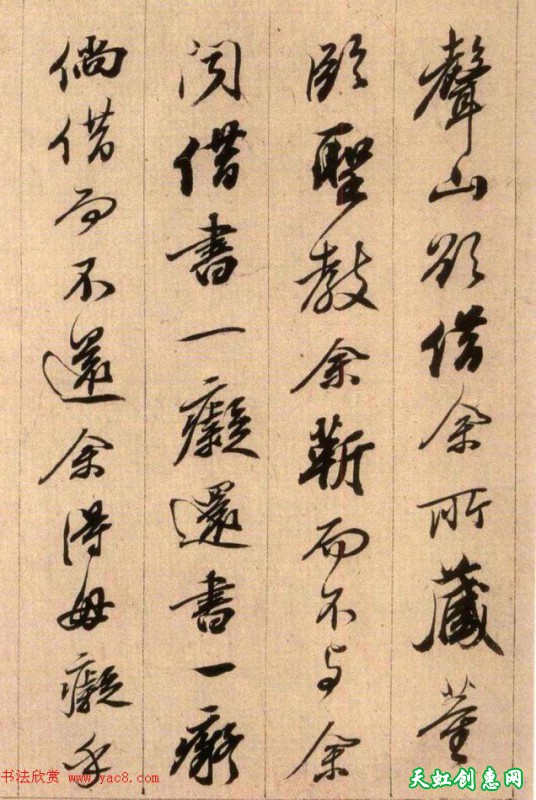 聲山欲借余所藏董
臨聖教余蘄而不與余
聞借書一癡還書一癡
倘借而不還余得毋癡乎
书法欣赏 www.yac8.com
天虹创惠网